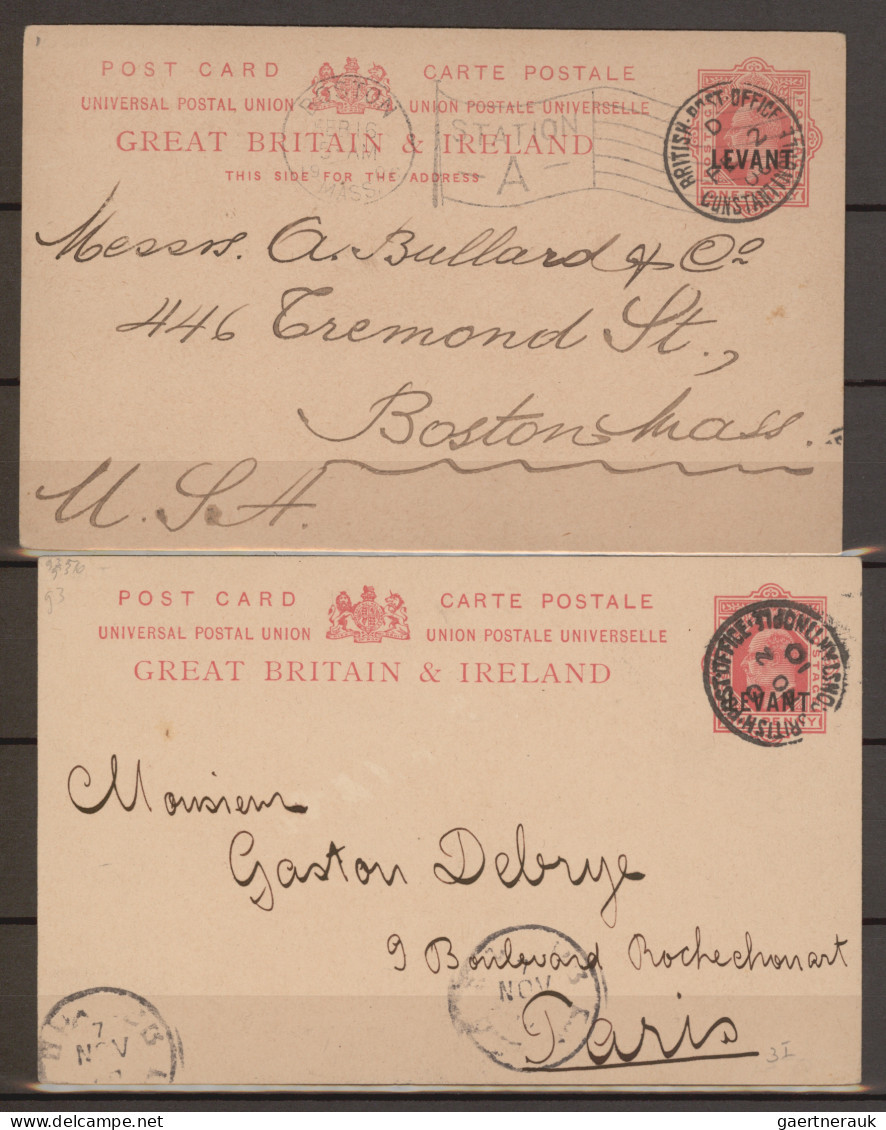 POST CARD CARTE POSTALE
UNIVERSAL POSTAL UNION UNION POSTALE UNIVERSELLE
GREAT BRITAIN & IRELAND
THIS SIDE FOR THE ADDRESS
BOSTON
MASS.
STATION
- A -
BRITISH·POST·OFFICE
LEVANT.
Messrs. A. Bullard & Co
446 Tremond St.,
Boston, Mass.
U.S.A.
3356
93
POST CARD CARTE POSTALE
UNIVERSAL POSTAL UNION UNION POSTALE UNIVERSELLE
GREAT BRITAIN & IRELAND
BRITISH·POST·OFFICE·CONSTANTINOPLE
LEVANT.
Monsieur
Gaston Debrye
9 Boulevard Rochechouart
Paris
NOV
7
NOV
gaertnerauk